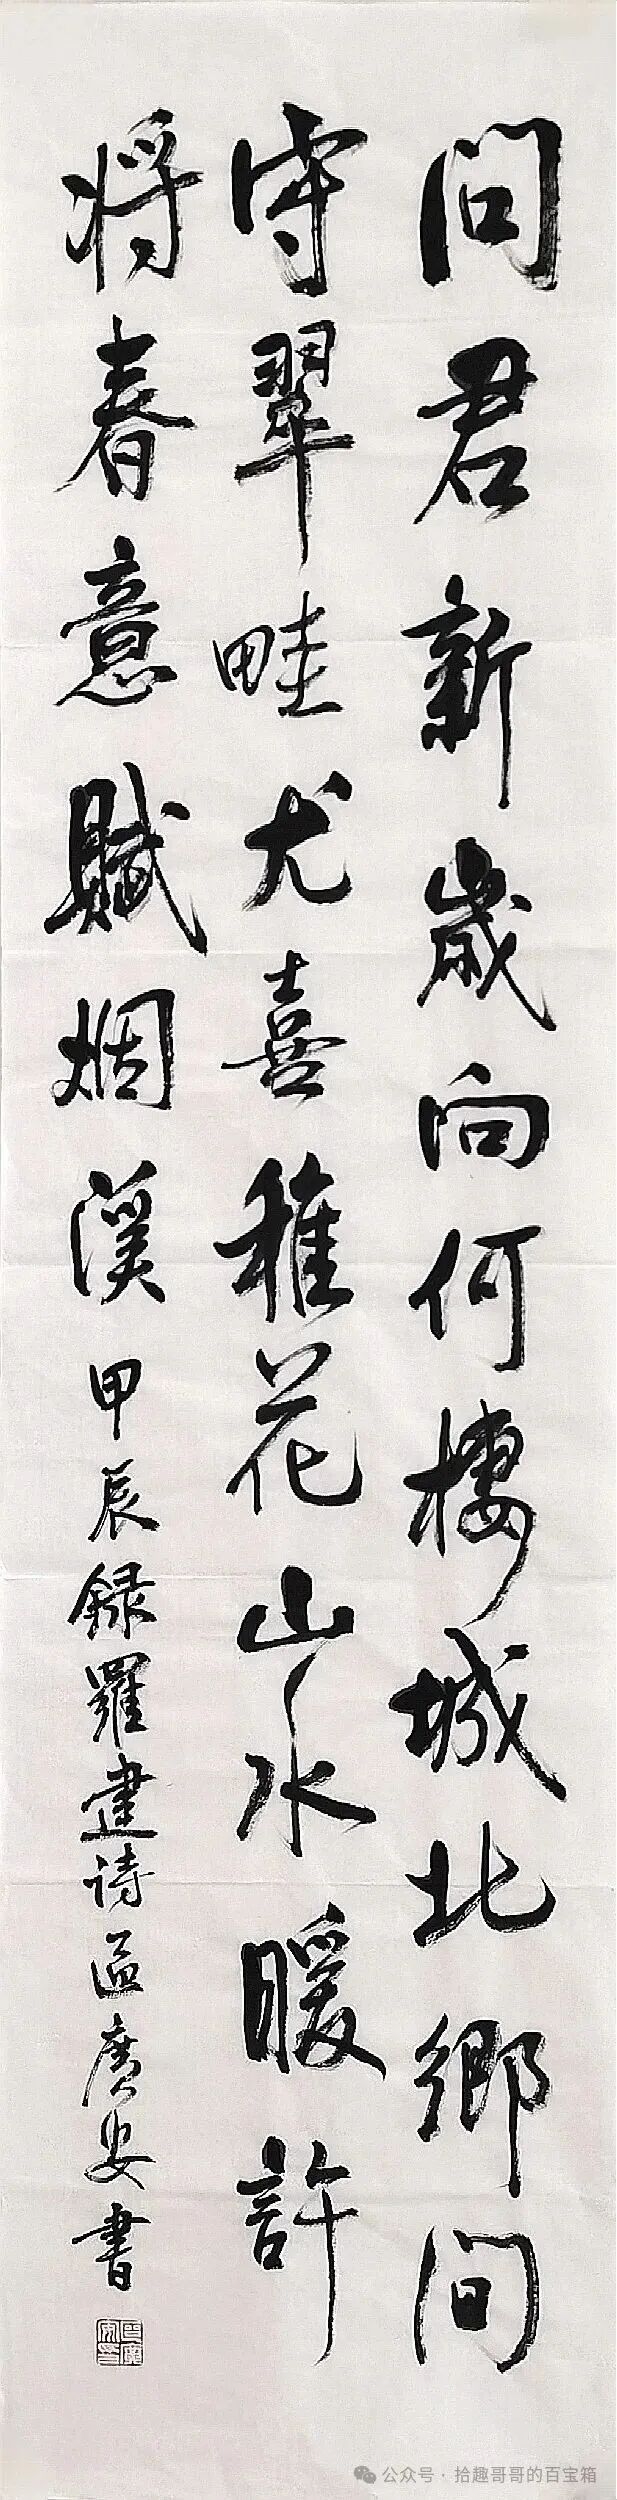 問君新歲向何棲城北鄉间
守翠畦尤喜稚花山水暖許
将春意賦烟溪甲辰録羅建诗区廣安書
公众号·拾趣哥哥的百宝箱